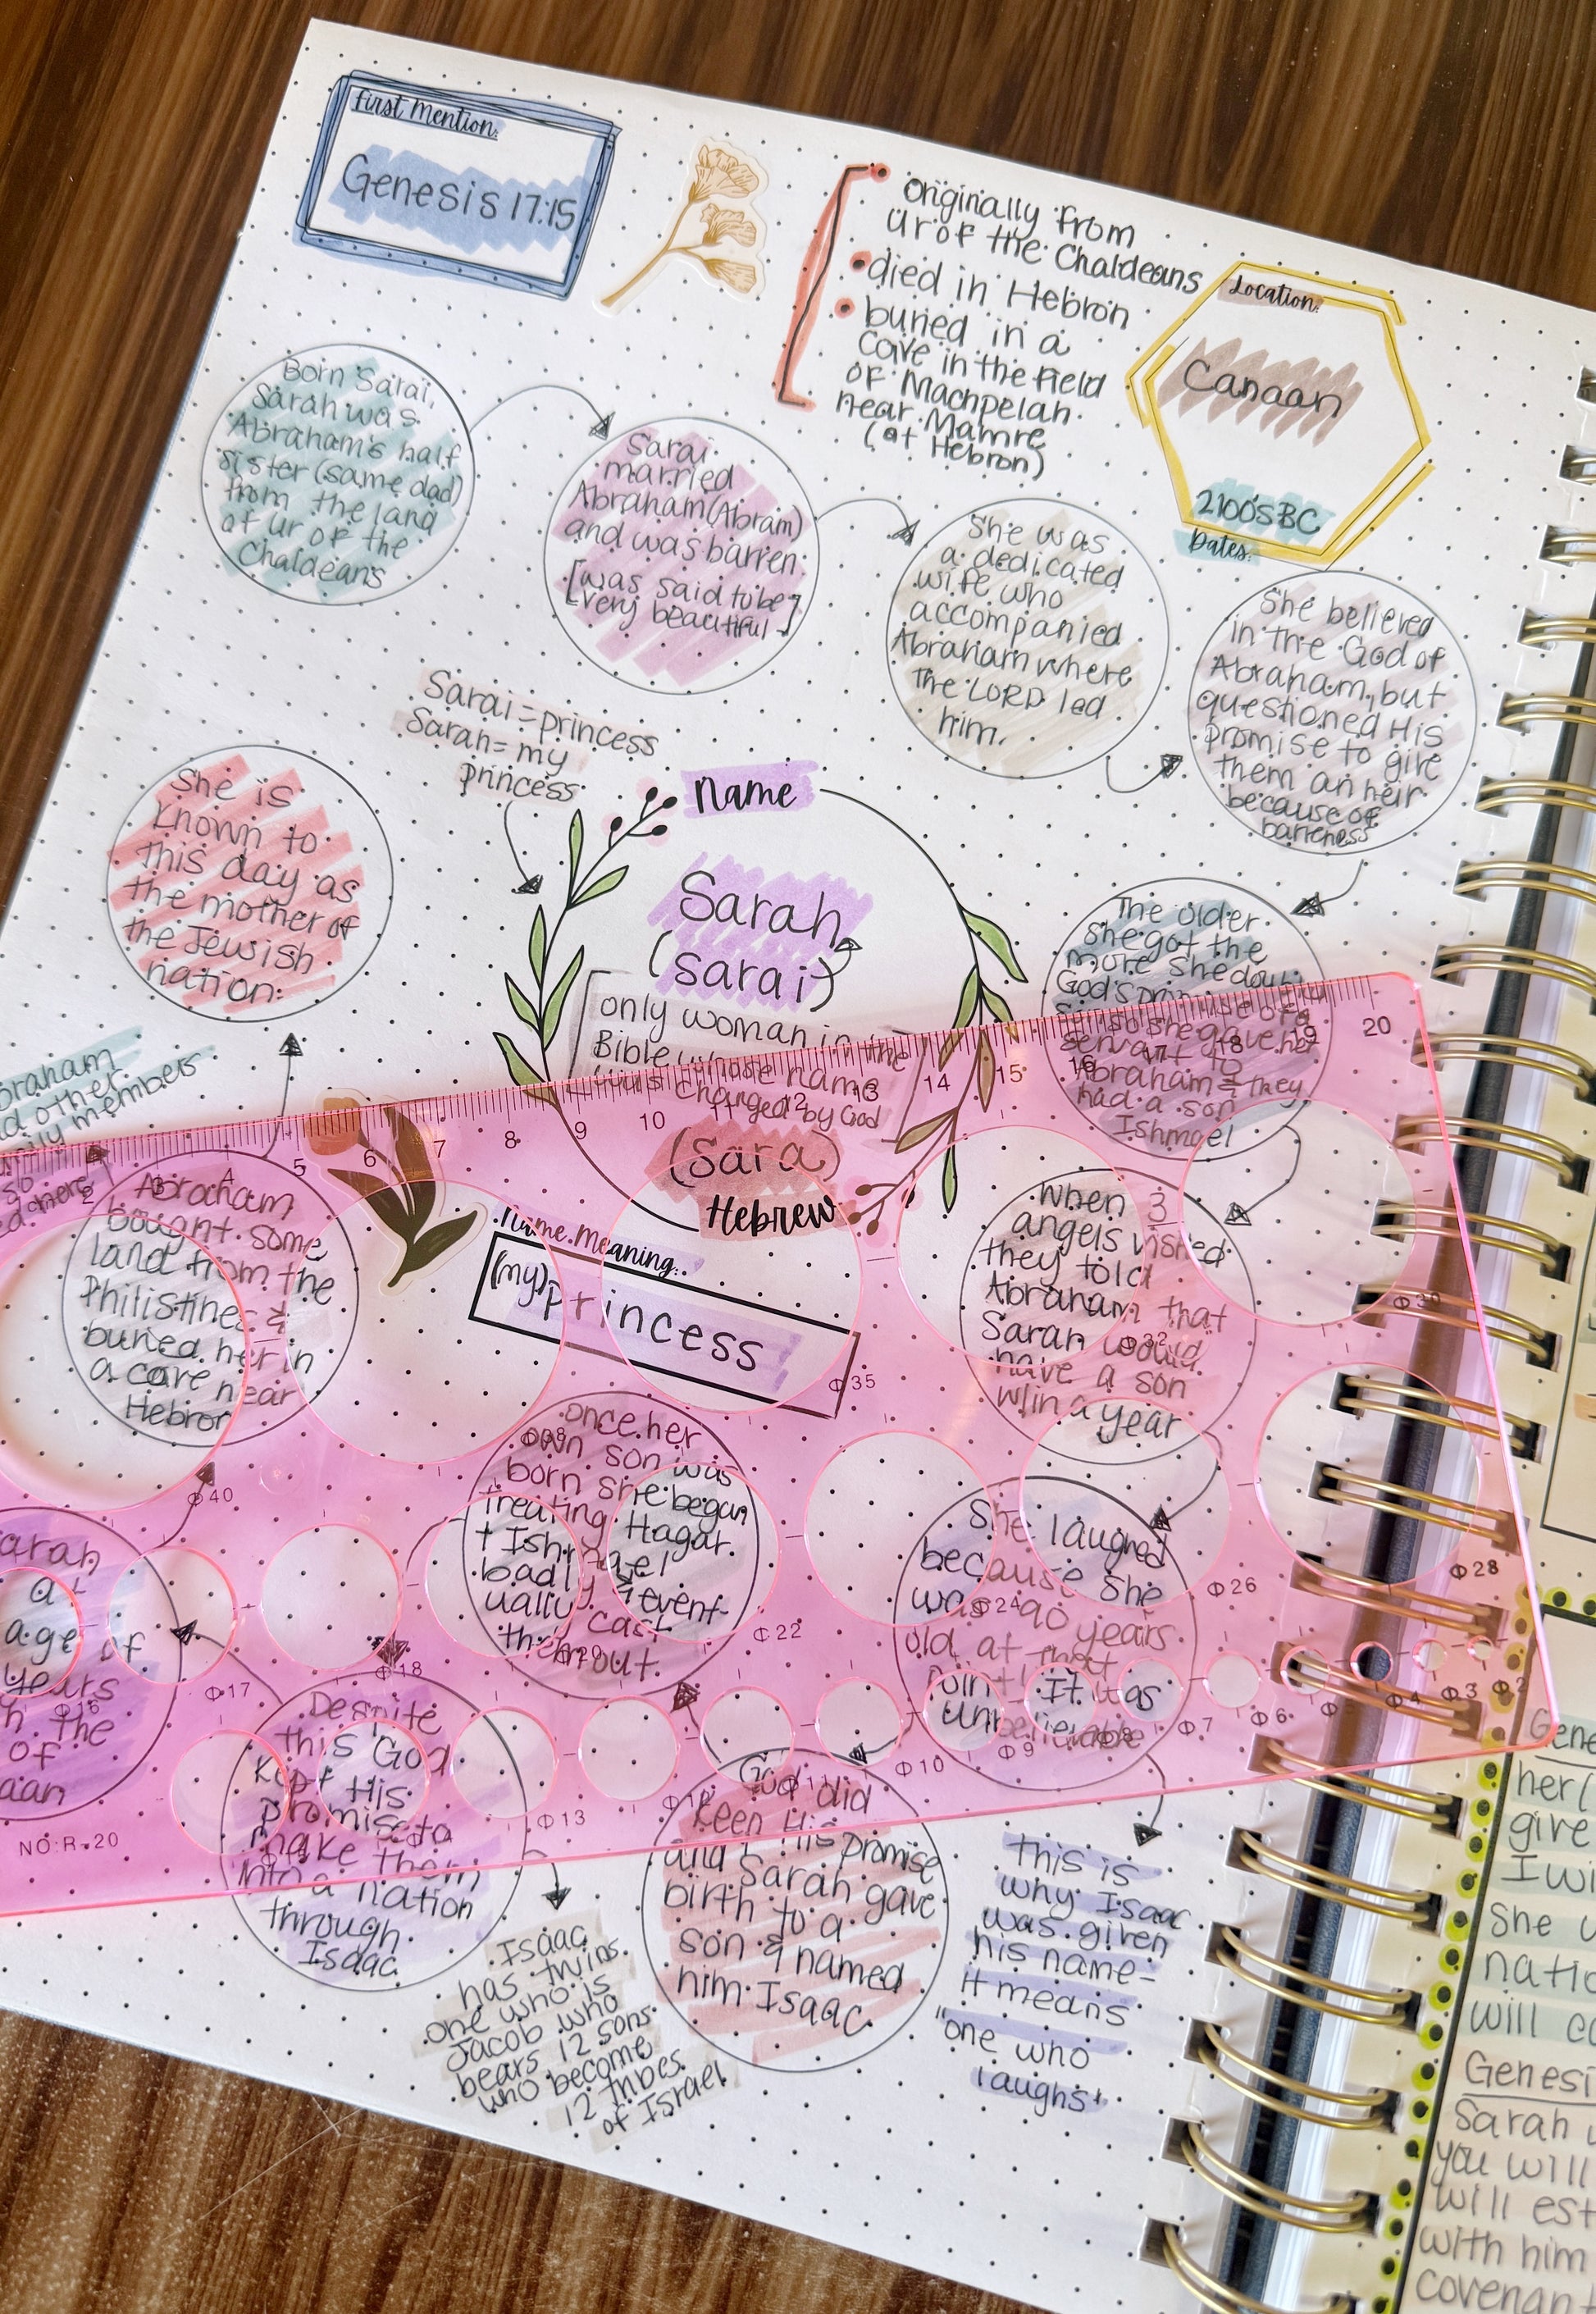 First Mention:
Genesis 17:15
Originally from
Ur of the Chaldeans
died in Hebron
buried in a
cave in the field
of Machpelah
near Mamre
(at Hebron)
Location:
Canaan
2100's BC
Dates:
Born Sarai,
Sarah was
Abraham's half
sister (same dad)
from the land
of Ur of the
Chaldeans
Sarai
married
Abraham (Abram)
and was barren
[was said to be
very beautiful]
She was
a dedicated
wife who
accompanied
Abraham where
the LORD led
him.
She believed
in the God of
Abraham, but
questioned His
promise to give
them an heir
because of
barreness
Sarai = princess
Sarah = my
princess
name
Sarah
(Sarai)
only woman in the
Bible whose name
was changed by God
(Sara)
Hebrew
Name Meaning:
(my) princess
The older
she got the
more she doubt
God's promise
so she gave her
servant to
Abraham & they
had a son
Ishmael
When 3
angels visited
they told
Abraham that
Sarah would
have a son
w/in a year
She laughed
because she
was 90 years
old at that
point! It was
unbelievable
this is
why Isaac
was given
his name-
it means
"one who
laughs"
God did
keep His promise
and Sarah gave
birth to a
son & named
him Isaac
once her
own son was
born she began
treating Hagar
+ Ishmael
badly & event-
ually cast
them out.
Despite
this God
kept His
promise to
make them
into a nation
through
Isaac
Isaac
has twins
one who is
Jacob who
bears 12 sons
who become
12 tribes
of Israel
arah
at
age of
years
the
of
aan
Abraham
bought some
land from the
Philistines &
buried her in
a cave near
Hebron
braham
d other
ily members
She is
known to
this day as
the mother of
the Jewish
nation:
2 3 4 5 6 7 8 9 10 11 12 13 14 15 16 17 18 19 20
Φ30
Φ32
Φ35
Φ38
Φ40
Φ28
Φ26
Φ24
Φ22
Φ20
Φ18
Φ17
Φ13
Φ11
Φ10
Φ9
Φ8
Φ7
Φ6
Φ4
Φ3
Φ2
NO:R-20
Gene
her(
give
I wi
she
natio
will co
Genesi
Sarah
you will
will est
with him
covenant